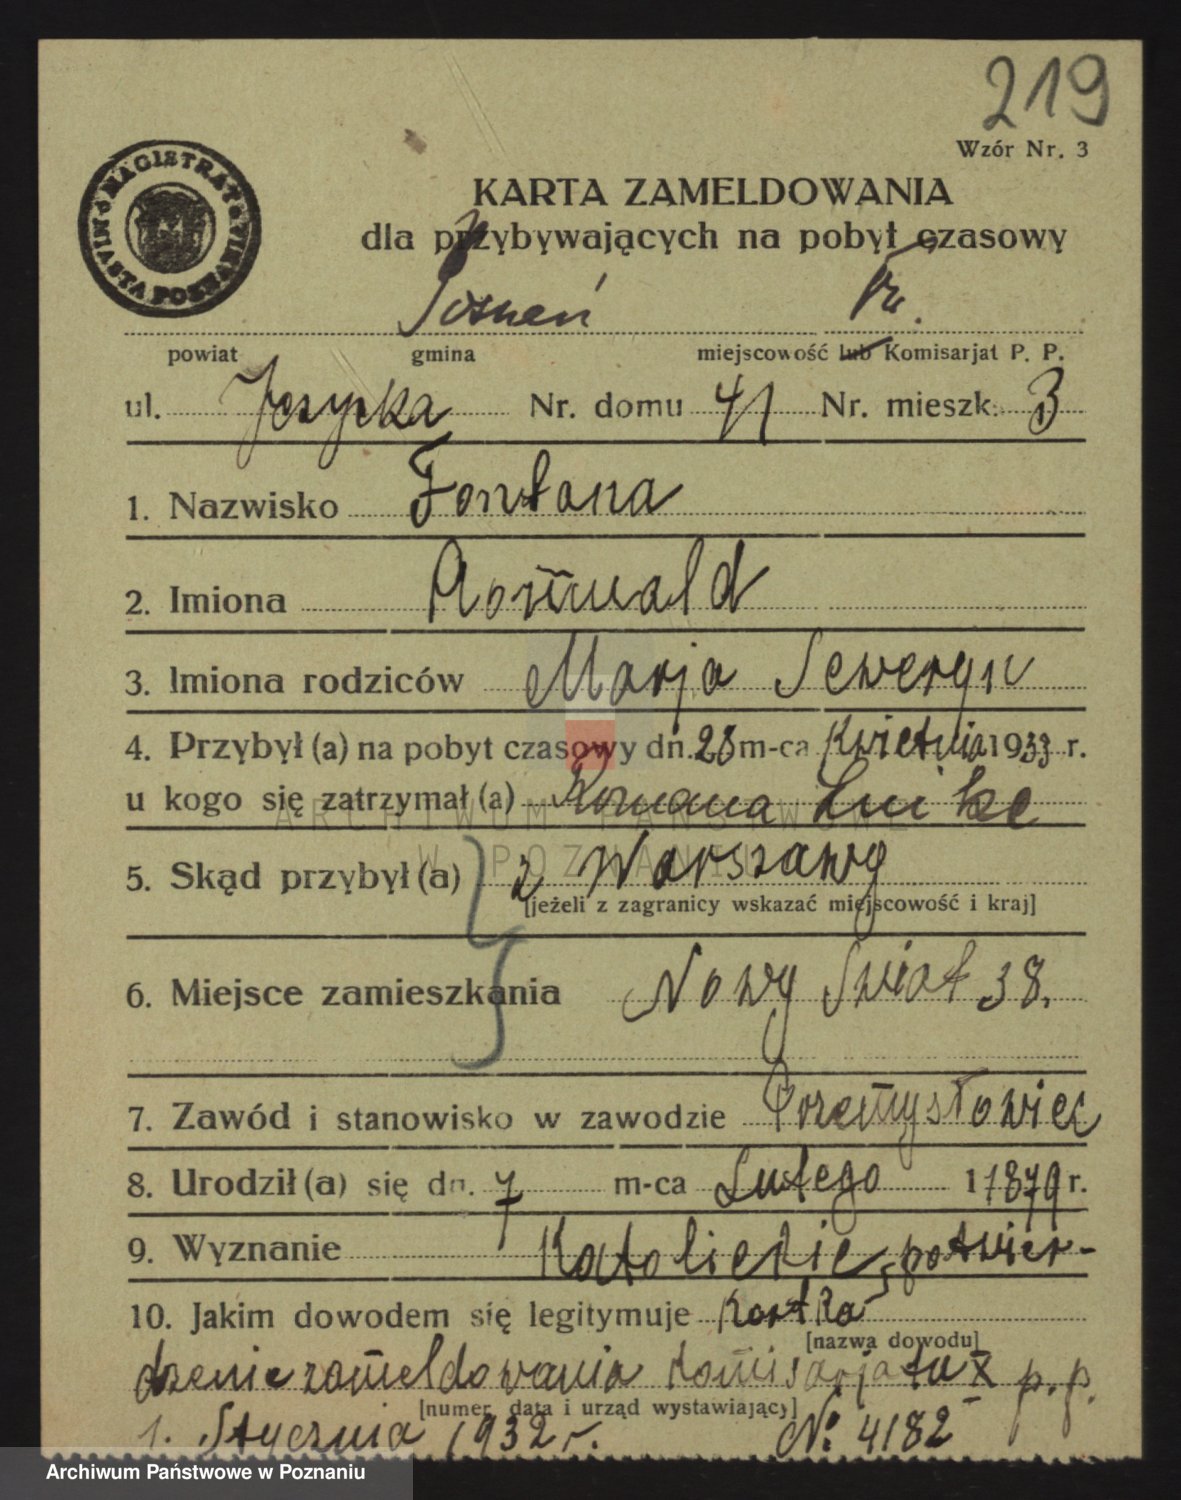 219
Wzór Nr. 3
MAGISTRAT MIASTA POZNANIA
KARTA ZAMELDOWANIA
dla przybywających na pobyt czasowy
Poznań
powiat gmina miejscowość lub Komisarjat P. P.
ul. Jeżycka Nr. domu 41 Nr. mieszk. 3
1. Nazwisko Fontana
2. Imiona Romuald
3. Imiona rodziców Marja Seweryn
4. Przybył (a) na pobyt czasowy dn. 28 m-ca Kwietnia 1933 r.
u kogo się zatrzymał (a) Romana
ARCHIWUM PAŃSTWOWE
W POZNANIU
5. Skąd przybył (a) z Warszawy
[jeżeli z zagranicy wskazać miejscowość i kraj]
6. Miejsce zamieszkania Nowy Świat 38.
7. Zawód i stanowisko w zawodzie Przemysłowiec
8. Urodził (a) się dn. 7 m-ca Lutego 1879 r.
9. Wyznanie Katolickie, potwier-
10. Jakim dowodem się legitymuje Kartka
[nazwa dowodu]
dzenie zameldowania komisarjatu X p.p.
[numer, data i urząd wystawiający]
1. Stycznia 1932 r. No 4182
Archiwum Państwowe w Poznaniu